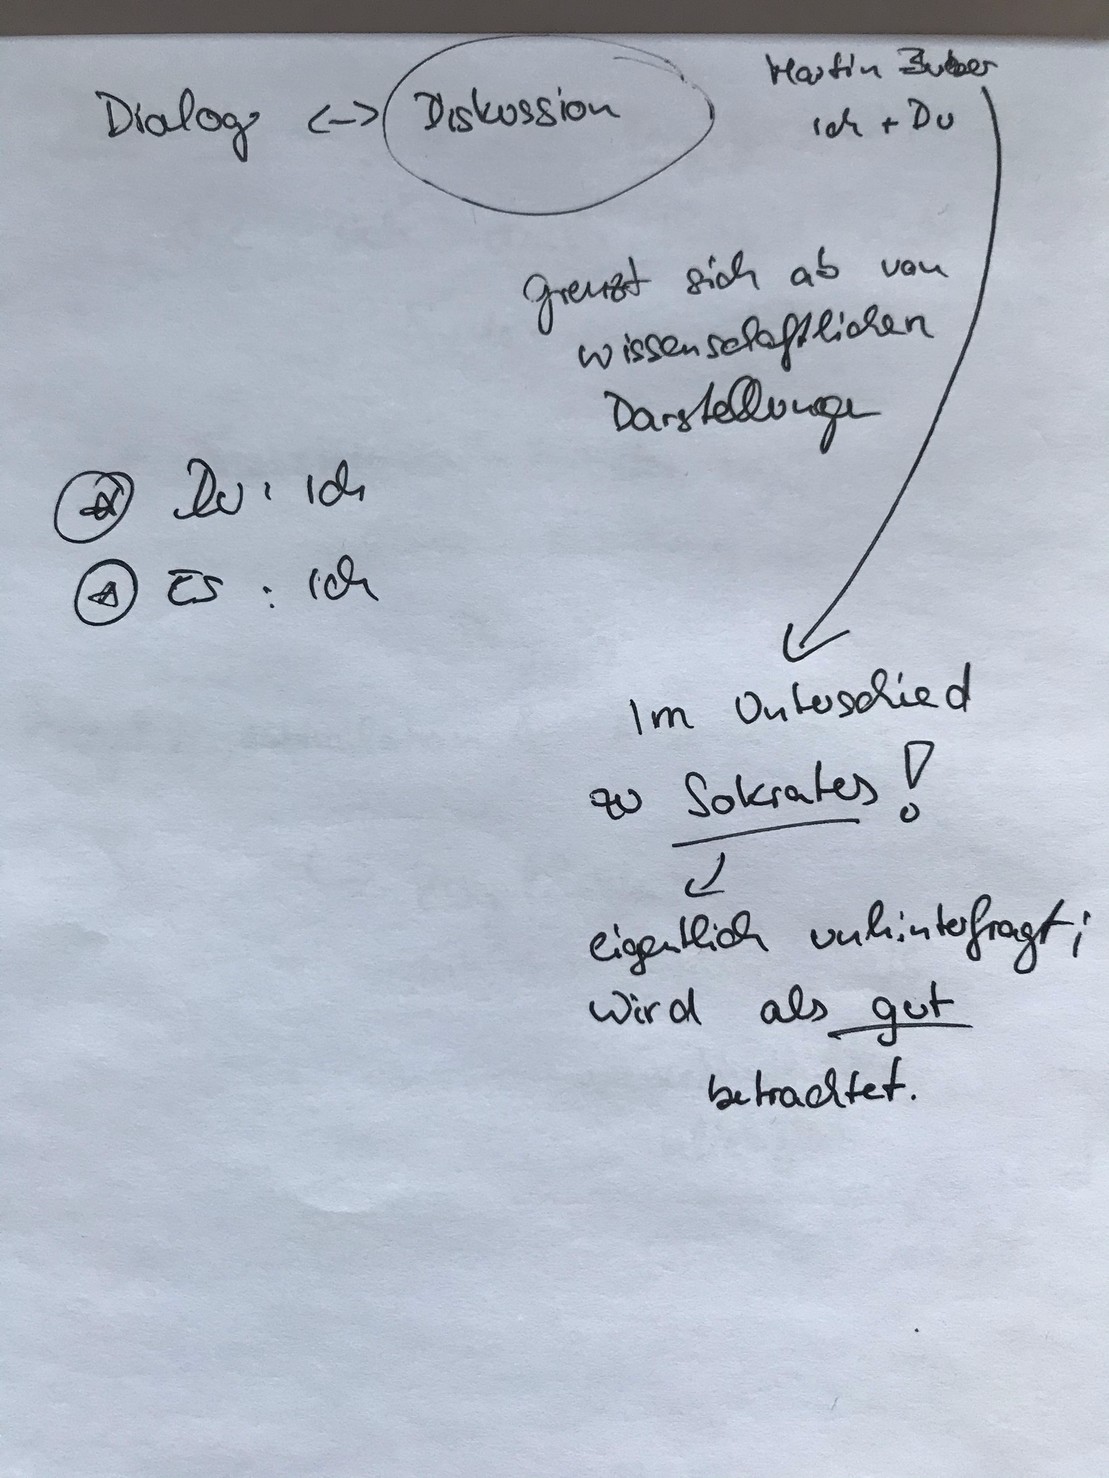 Dialog <-> Diskussion
Martin Buber
ich + Du
grenzt sich ab von
wissenschaftlichen
Darstellungen
Du : ich
Es : ich
Im Unterschied
zu Sokrates!
eigentlich unhinterfragt;
wird als gut
betrachtet.